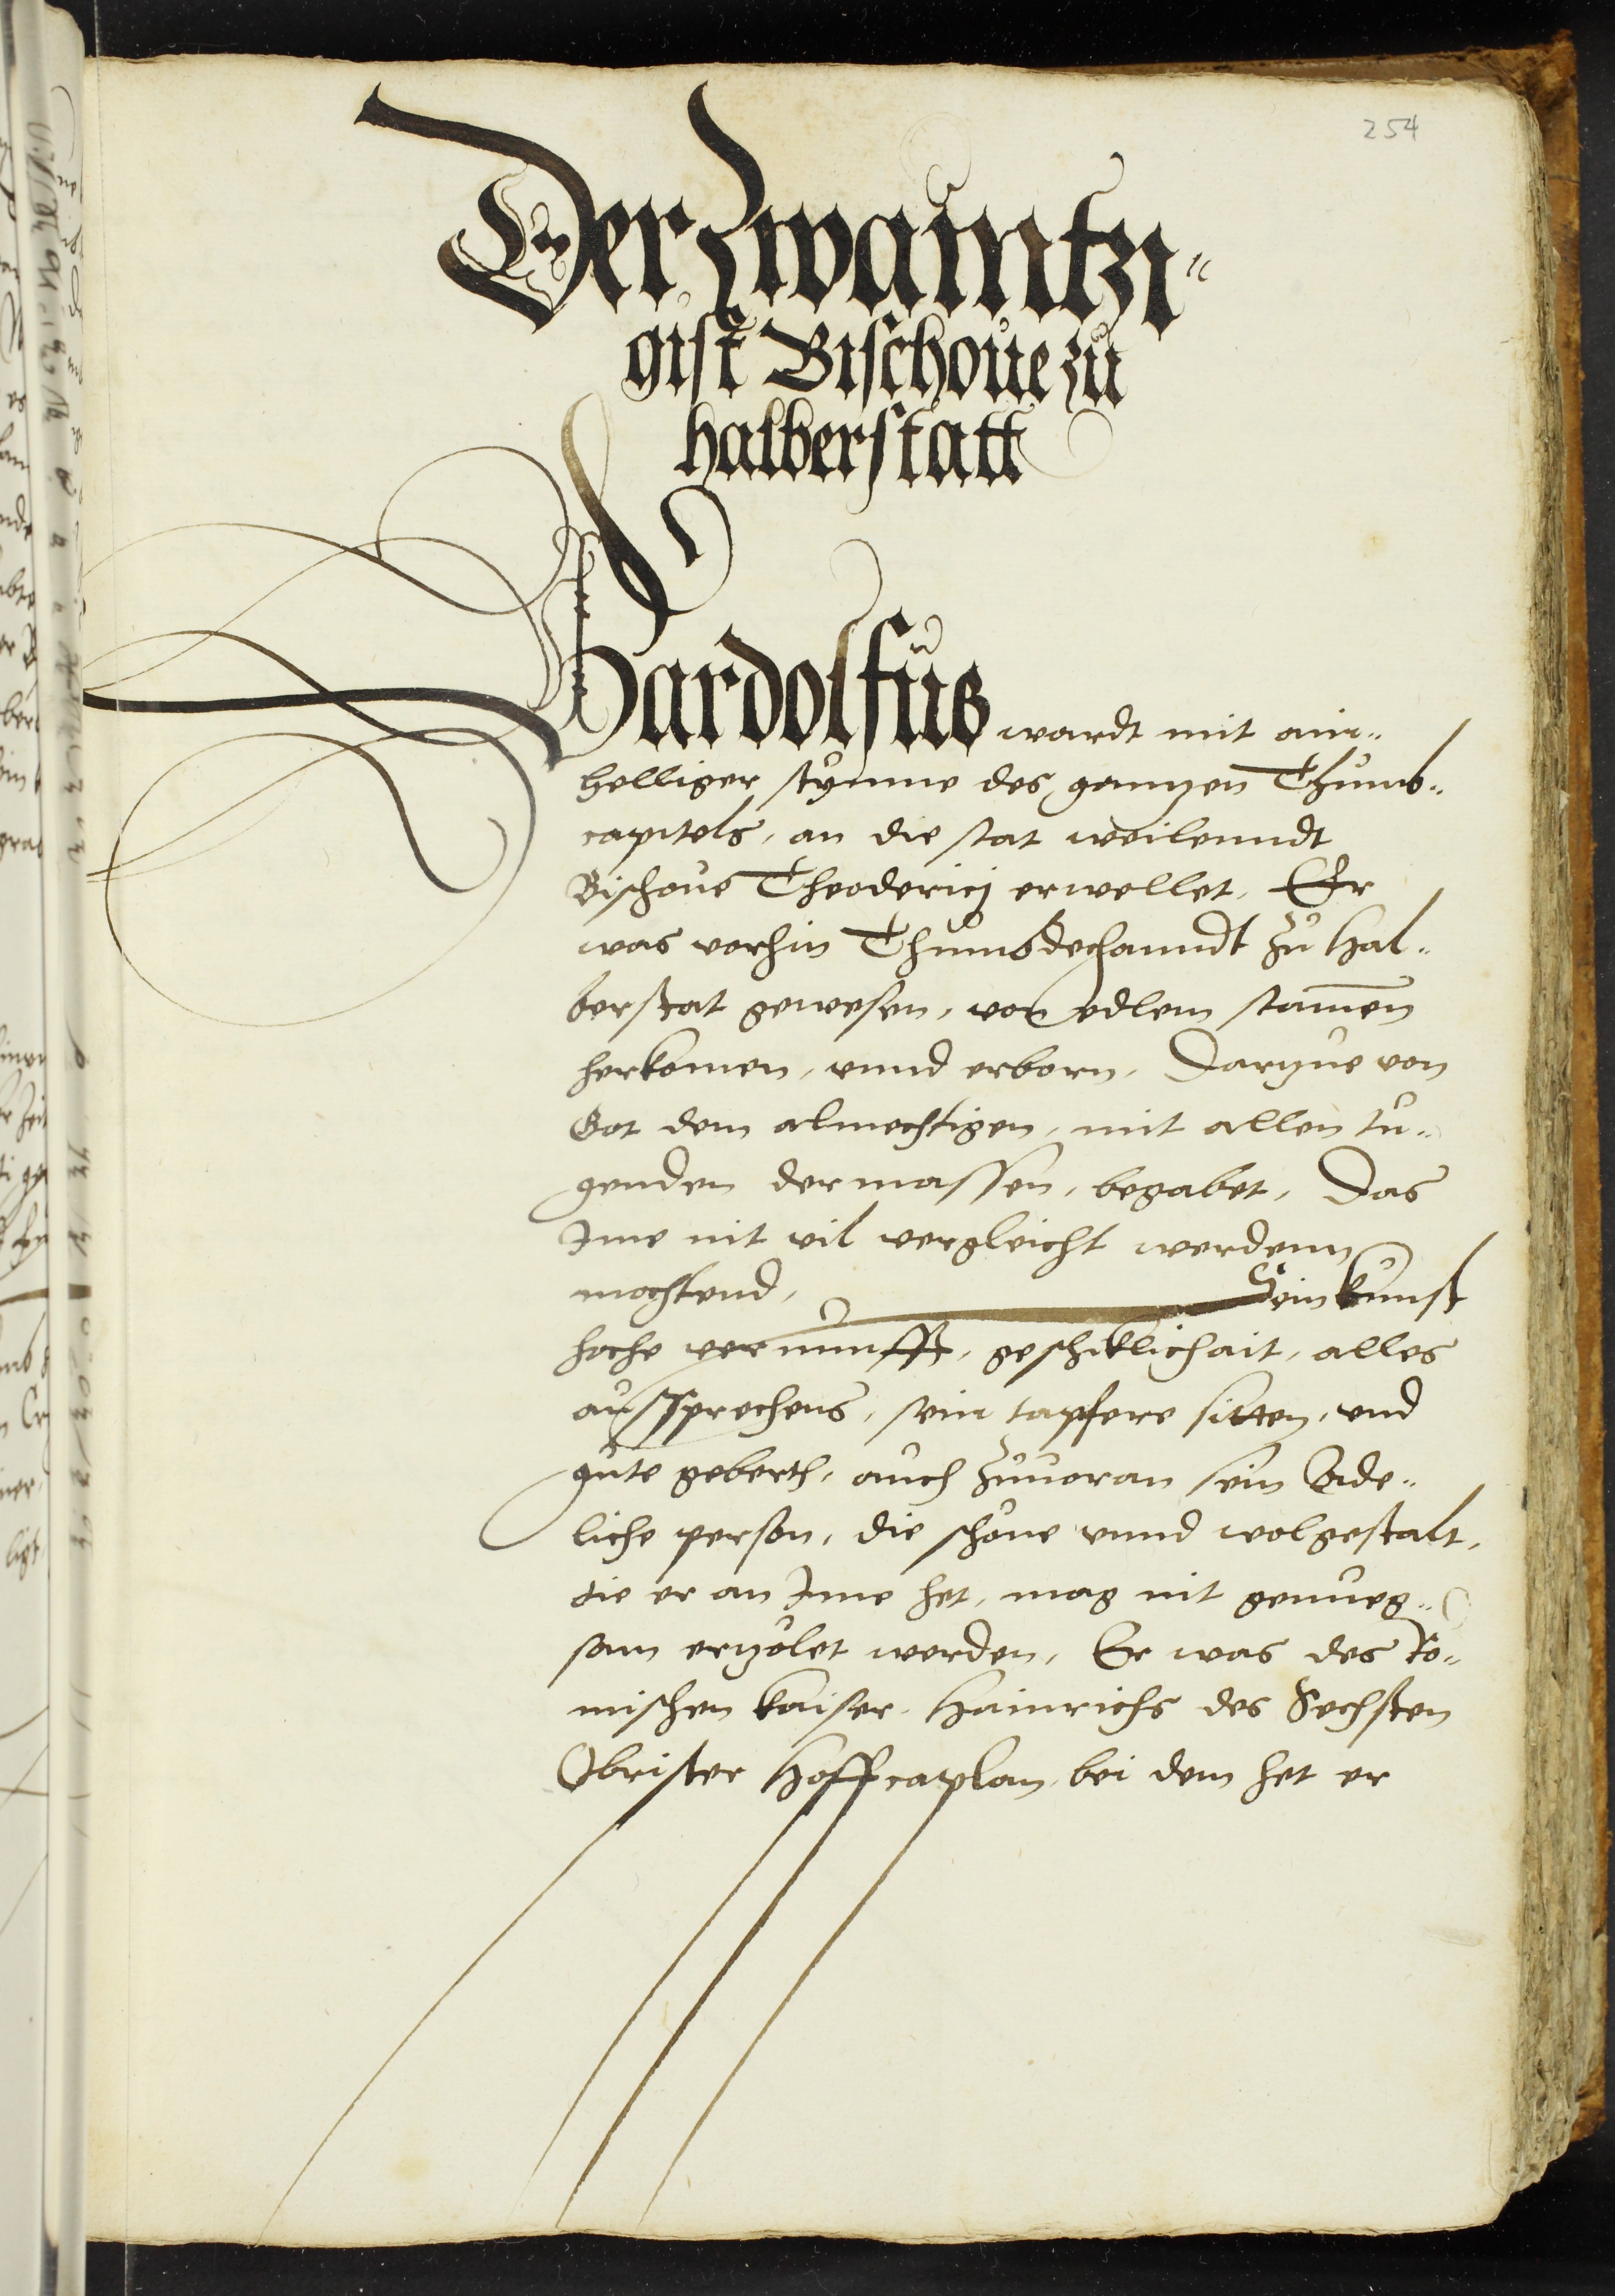 254
Der Zwaintzi=
gist Bischoue zu
halberstatt
Gardolfus wardt mit ain=
helliger stymme des gantzen Thumb=
capitels, an die stat weilenndt
Bischoue Theoderici erwellet, Er
was vorhin Thumbdechanndt zu Hal=
berstat gewesen, von edlem stamen
herkomen, vnnd erborn, Darzue von
Got dem almechtigen, mit allen tu=
genden dermassen, begabet, Das
Ime nit vil vergleicht werdenn
mochtend, Sein kunst
hoche vernunfft, geschiklichait, alles
aussprechens, sein tapfere sitten, vnd
gute geberth, auch zuuoran sein Ade=
liche person, die schöne vnnd wolgestalt,
die er an Ime het, mag nit genueg=
sam erzölet werden, Er was des Rö=
mischen kaiser Hainrichs des Sechsten
Obrister Hoffcaplan, bei dem het er